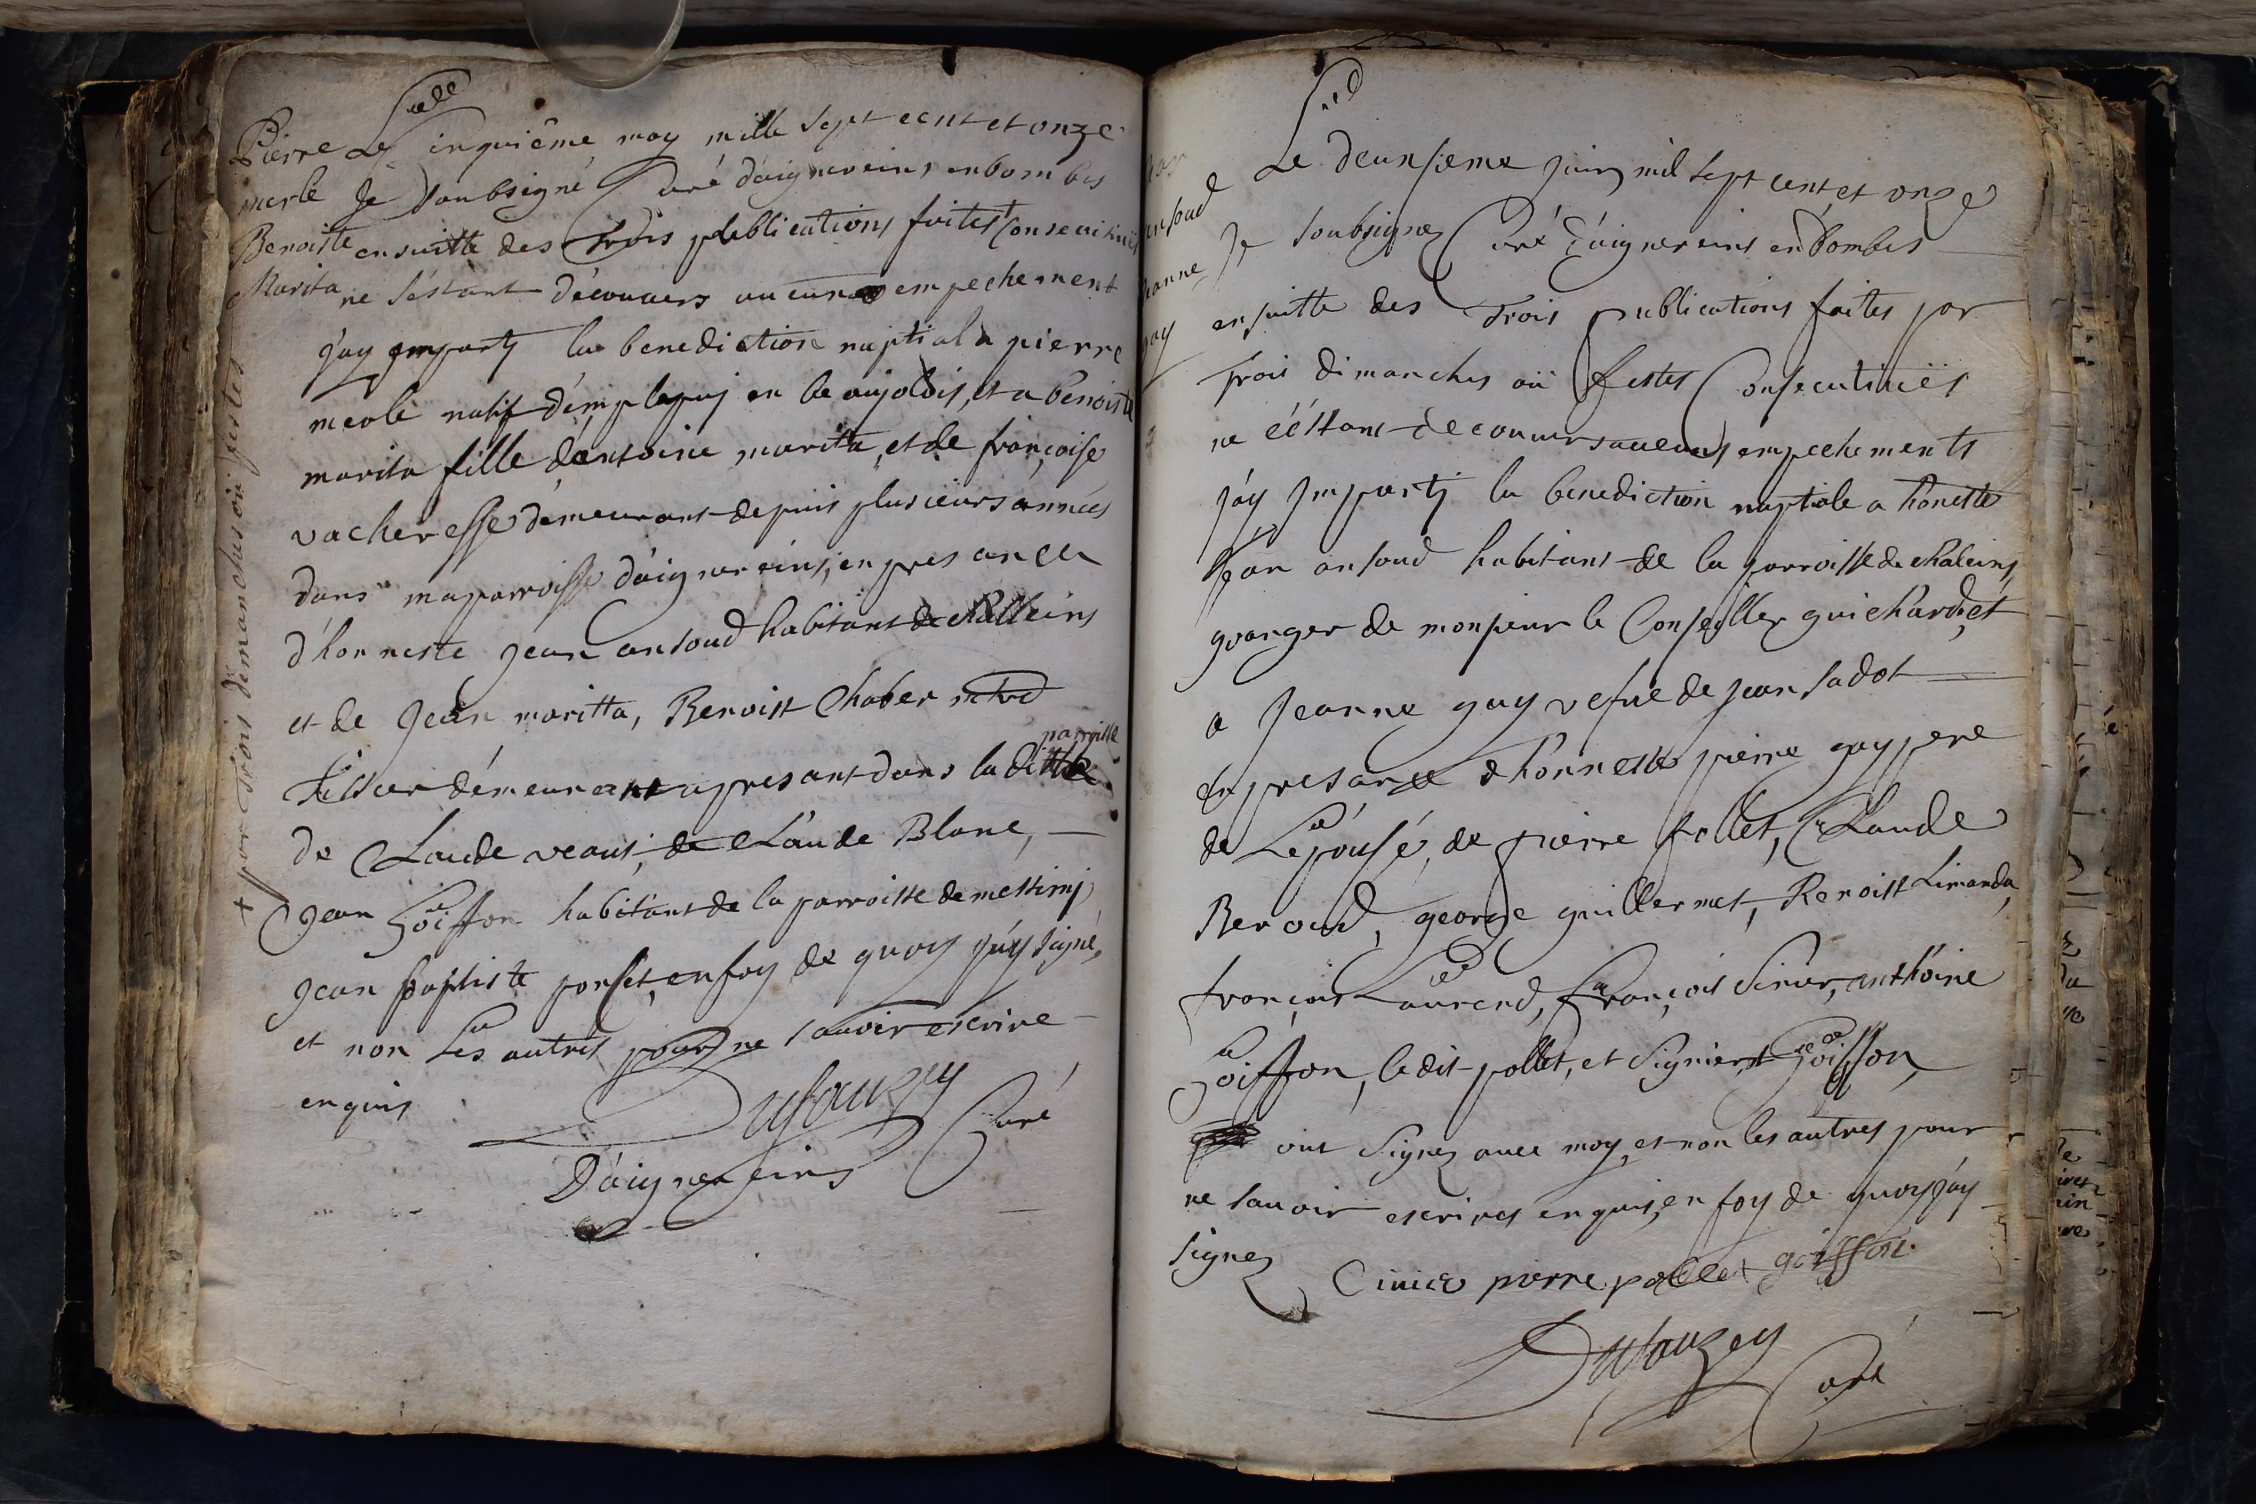 Pierre
merle
Benoiste
Marita
Le cinquiême may mille sept cent et onze
Je soubsigné Curé d'aignereins en dombes
ensuitte des trois publications faites + Consecutiues
ne s'éstant découuers aucunes empechement
j'ay imparty la benediction nuptial a pierre
merle natif d'émplepuy en beaujolois, et a benoiste
marita fille d'antoine marita, et de françoise
vacheresse démeurant depuis plusiëurs années
dans ma parroisse d'aignereins, en presance
d'honneste jean ansoud habitant de Challeins
et de Jean maritta, Benoist Chaber
tissier démeurant apresant dans la ditte
parroisse
de Claude veaus, de Claude Blanc,
Jean goiffon habitant de la parroisse de messimj
jean baptiste ponset, en foy de quoy j'ay signé,
et non Les autres pour ne sauoir escrire
enquis
Dusauzey
Curé
D'aignereins
+ par trois démanches ou festes
ansoud
jeanne
guy
Le deunsieme juin mil sept cent, et onze
Je soubsignez Curé d'aignereins en dombes
ensuitte des trois publications faites par
trois dimanches oü festes Consecutiuës
ne s'éstant decouuers aucuns empechements
j'ay Imparty la benediction nuptiale a honeste
Jean ansoud habitant de la parroisse de chaleins,
granger de monsieur le Conseiller guichard, et
a Jeanne guy vefue de jean sadot
en presance d'honneste pierre guy pere
de L'epousé, de pierre pollet, Claude
Beroud, george guillermet, Benoist Limanda,
françois Laurend, françois Siuier, anthoine
goiffon, le dit pollet, et signiert goiffon,
ont signez auec moy, et non les autres pour
ne sauoir escrires enquis, en foy de quoy j'ay
signez
Ciuier pierre pollet goiffon
Dusauzey
Curé